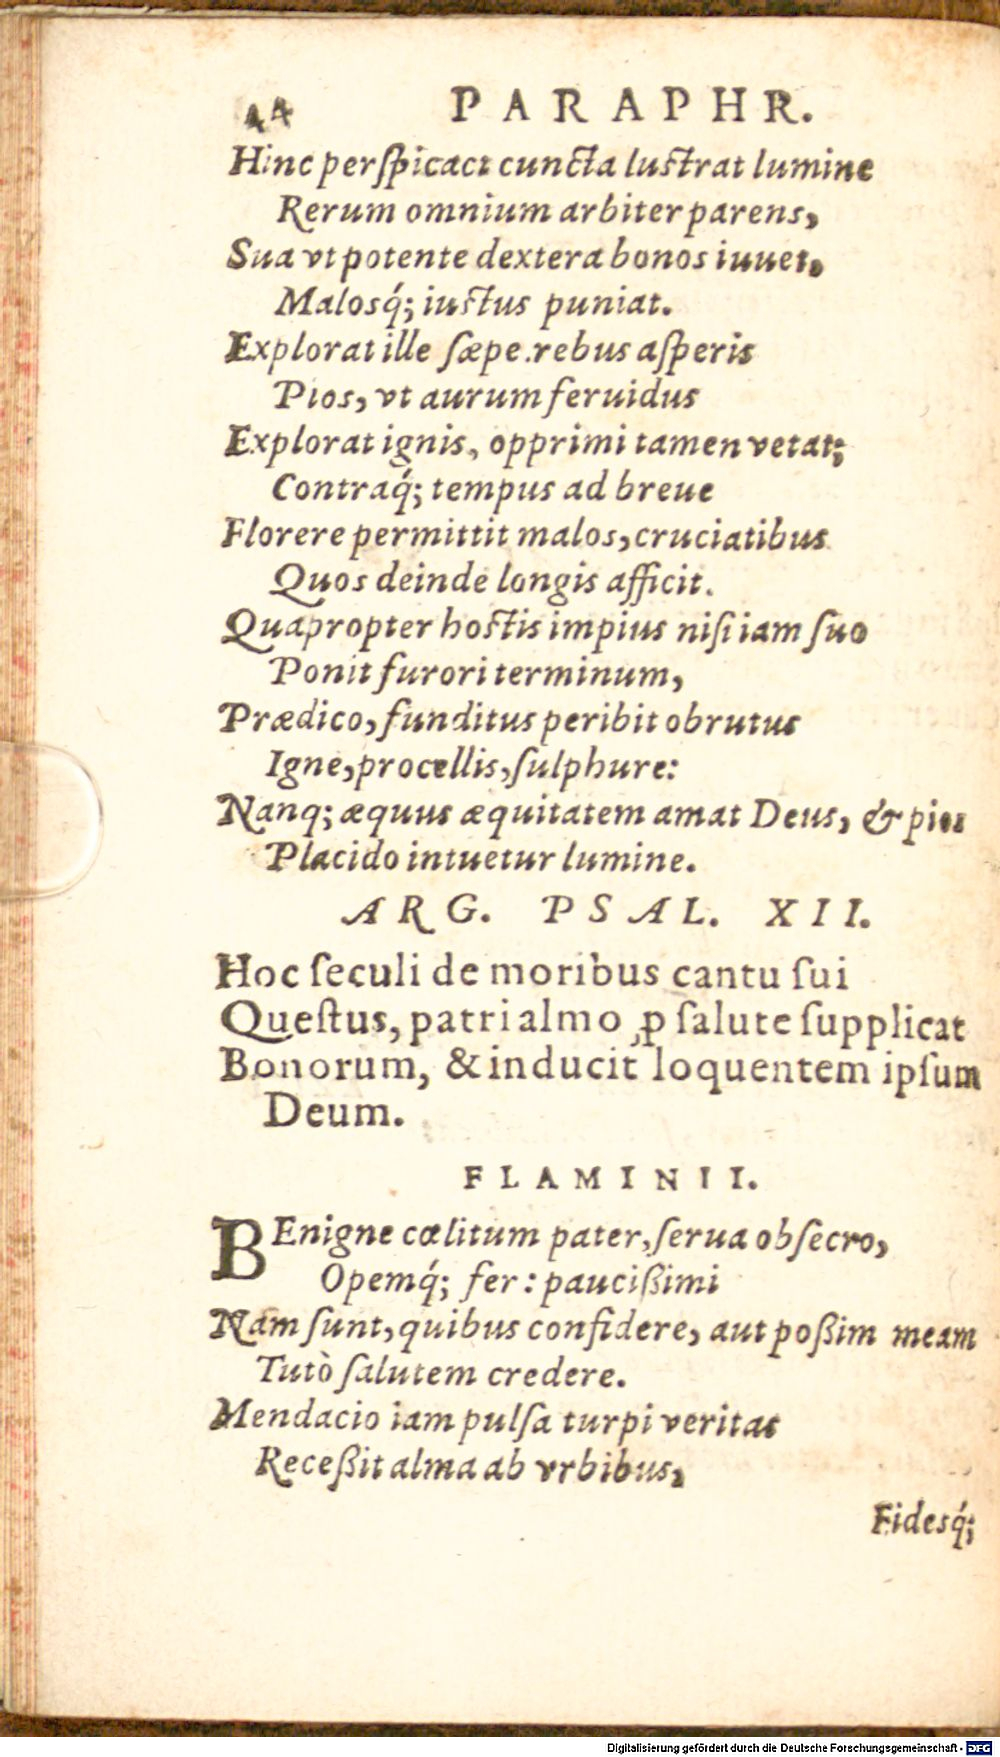 44 PARAPHR.
Hinc perſpicaci cuncta luſtrat lumine
Rerum omnium arbiter parens,
Sua vt potente dextera bonos iuuet,
Malosq́; iuſtus puniat.
Explorat ille ſæpe rebus aſperis
Pios, vt aurum feruidus
Explorat ignis, opprimi tamen vetat;
Contraq́; tempus ad breue
Florere permittit malos, cruciatibus
Quos deinde longis afficit.
Quapropter hoſtis impius niſi iam ſuo
Ponit furori terminum,
Prædico, funditus peribit obrutus
Igne, procellis, ſulphure:
Nanq; æquus æquitatem amat Deus, & pios
Placido intuetur lumine.
ARG. PSAL. XII.
Hoc ſeculi de moribus cantu ſui
Queſtus, patri almo ꝓ ſalute ſupplicat
Bonorum, & inducit loquentem ipſum
Deum.
FLAMINII.
BEnigne cœlitum pater, ſerua obſecro,
Opemq́; fer: paucißimi
Nam ſunt, quibus confidere, aut poßim meam
Tutò ſalutem credere.
Mendacio iam pulſa turpi veritas
Receßit alma ab vrbibus,
Fidesq́;
Digitalisierung gefördert durch die Deutsche Forschungsgemeinschaft - DFG